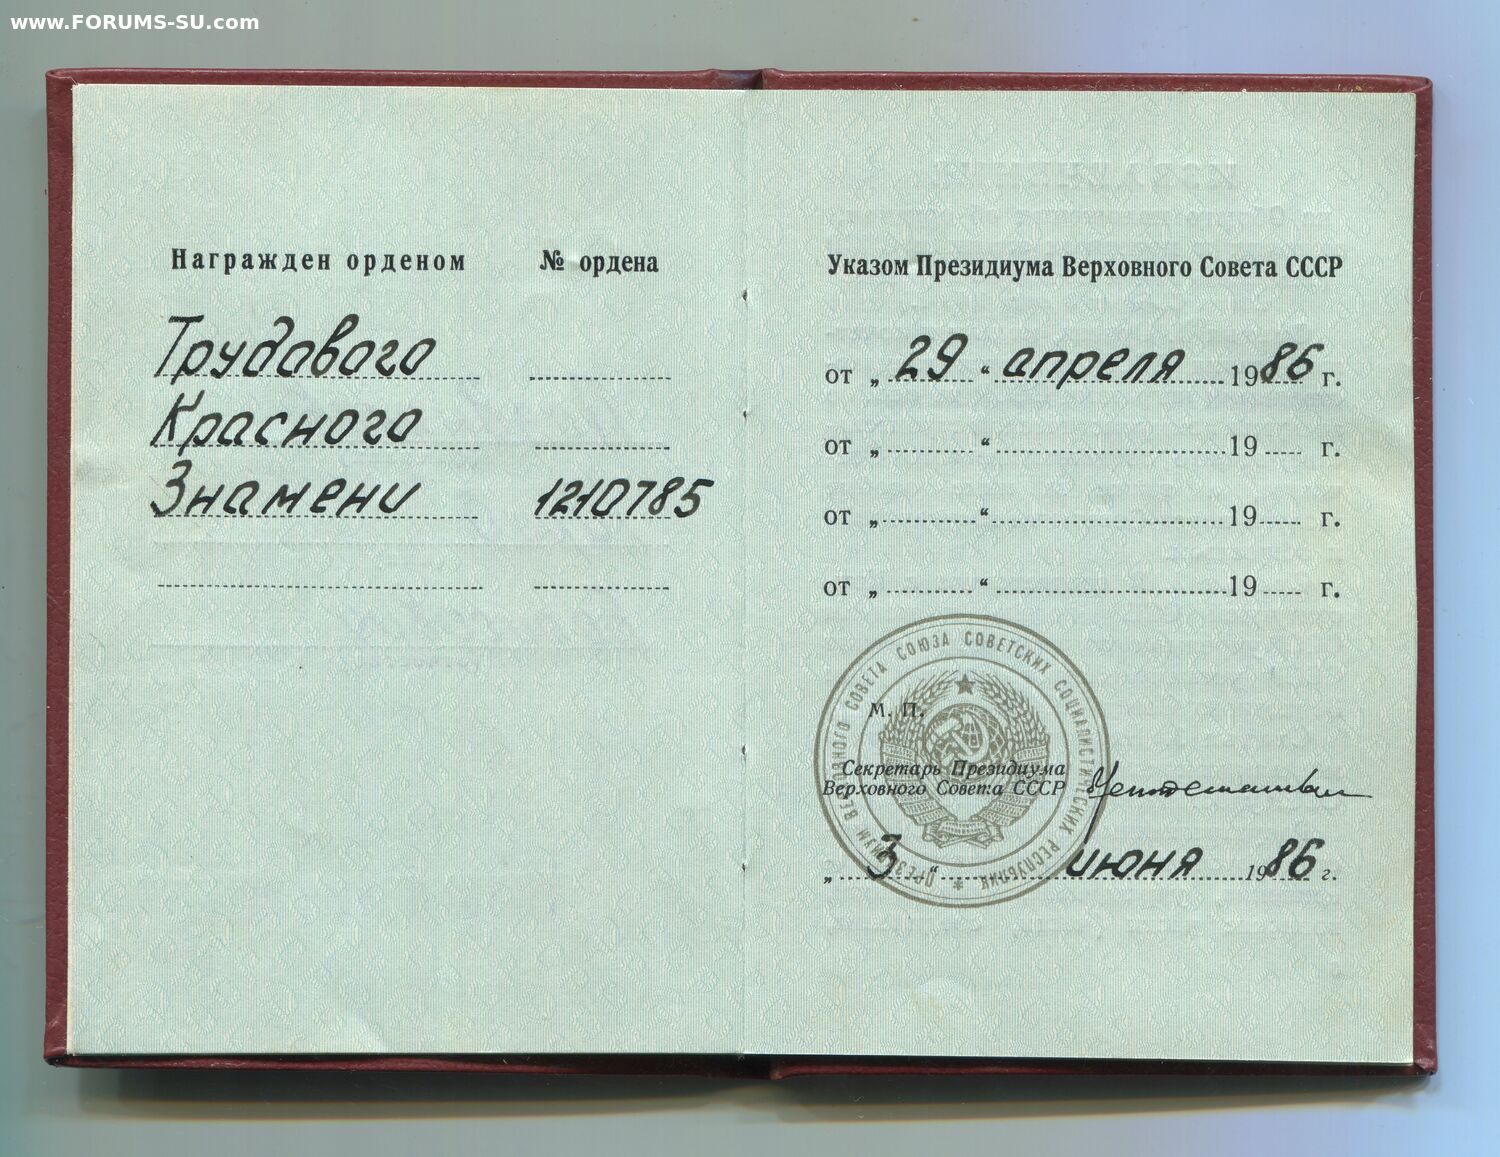 www.FORUMS-SU.com
Награжден орденом № ордена
Трудового
Красного
Знамени 1210785
Указом Президиума Верховного Совета СССР
от „ 29 “ апреля 1986 г.
от „ “ 19 г.
от „ “ 19 г.
от „ “ 19 г.
ПРЕЗИДИУМ ВЕРХОВНОГО СОВЕТА СОЮЗА СОВЕТСКИХ СОЦИАЛИСТИЧЕСКИХ РЕСПУБЛИК
М. П.
Секретарь Президиума
Верховного Совета СССР
„ 3 “ июня 1986 г.